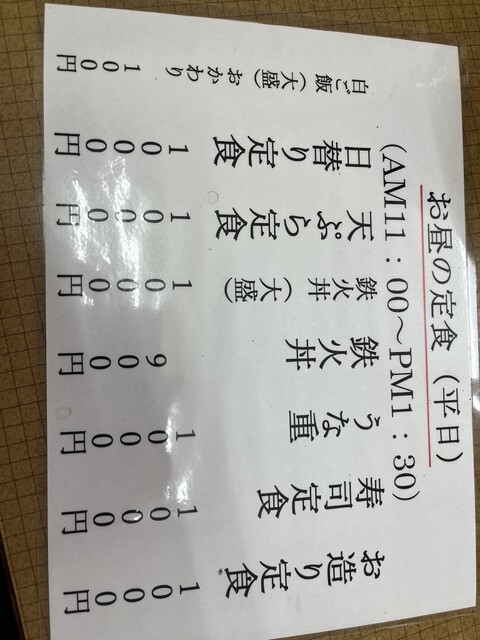 お昼の定食（平日）
（AM11：00～PM1：30）
お造り定食 1000円
寿司定食 1000円
うな重 1000円
鉄火丼 900円
鉄火丼（大盛） 1000円
天ぷら定食 1000円
日替り定食 1000円
白ご飯（大盛）おかわり 100円